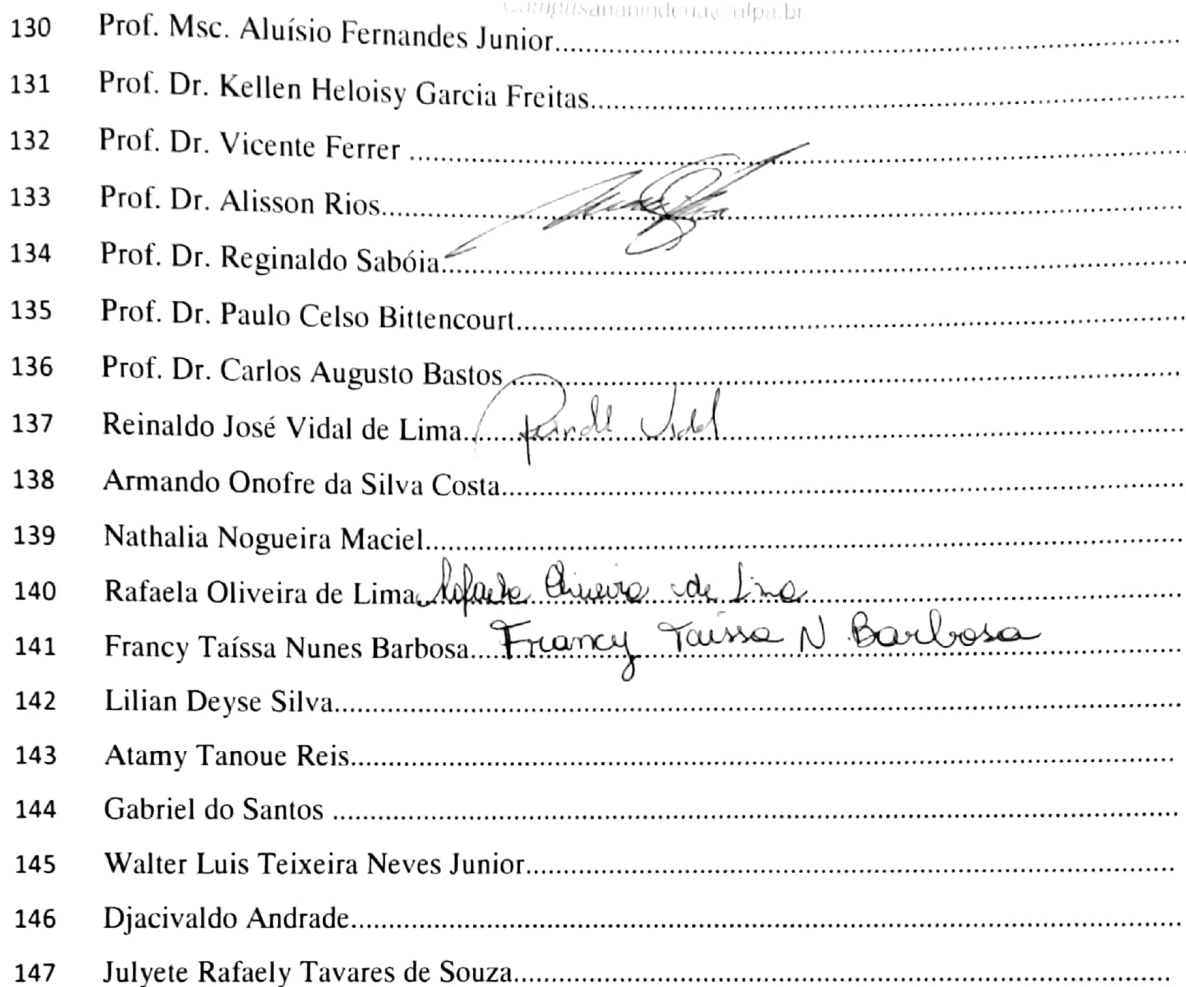 130 Prof. Msc. Aluísio Fernandes Junior
131 Prof. Dr. Kellen Heloisy Garcia Freitas
132 Prof. Dr. Vicente Ferrer
133 Prof. Dr. Alisson Rios
134 Prof. Dr. Reginaldo Sabóia
135 Prof. Dr. Paulo Celso Bittencourt
136 Prof. Dr. Carlos Augusto Bastos
137 Reinaldo José Vidal de Lima Vidal
138 Armando Onofre da Silva Costa
139 Nathalia Nogueira Maciel
140 Rafaela Oliveira de Lima Rafaela Oliveira de Lima
141 Francy Taíssa Nunes Barbosa Francy Taíssa N. Barbosa
142 Lilian Deyse Silva
143 Atamy Tanoue Reis
144 Gabriel do Santos
145 Walter Luis Teixeira Neves Junior
146 Djacivaldo Andrade
147 Julyete Rafaely Tavares de Souza